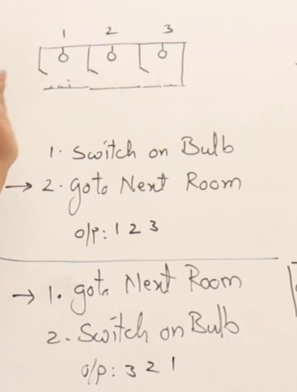 1 2 3
1. Switch on Bulb
→ 2. goto Next Room
o/p: 1 2 3
→ 1. goto Next Room
2. Switch on Bulb
o/p: 3 2 1